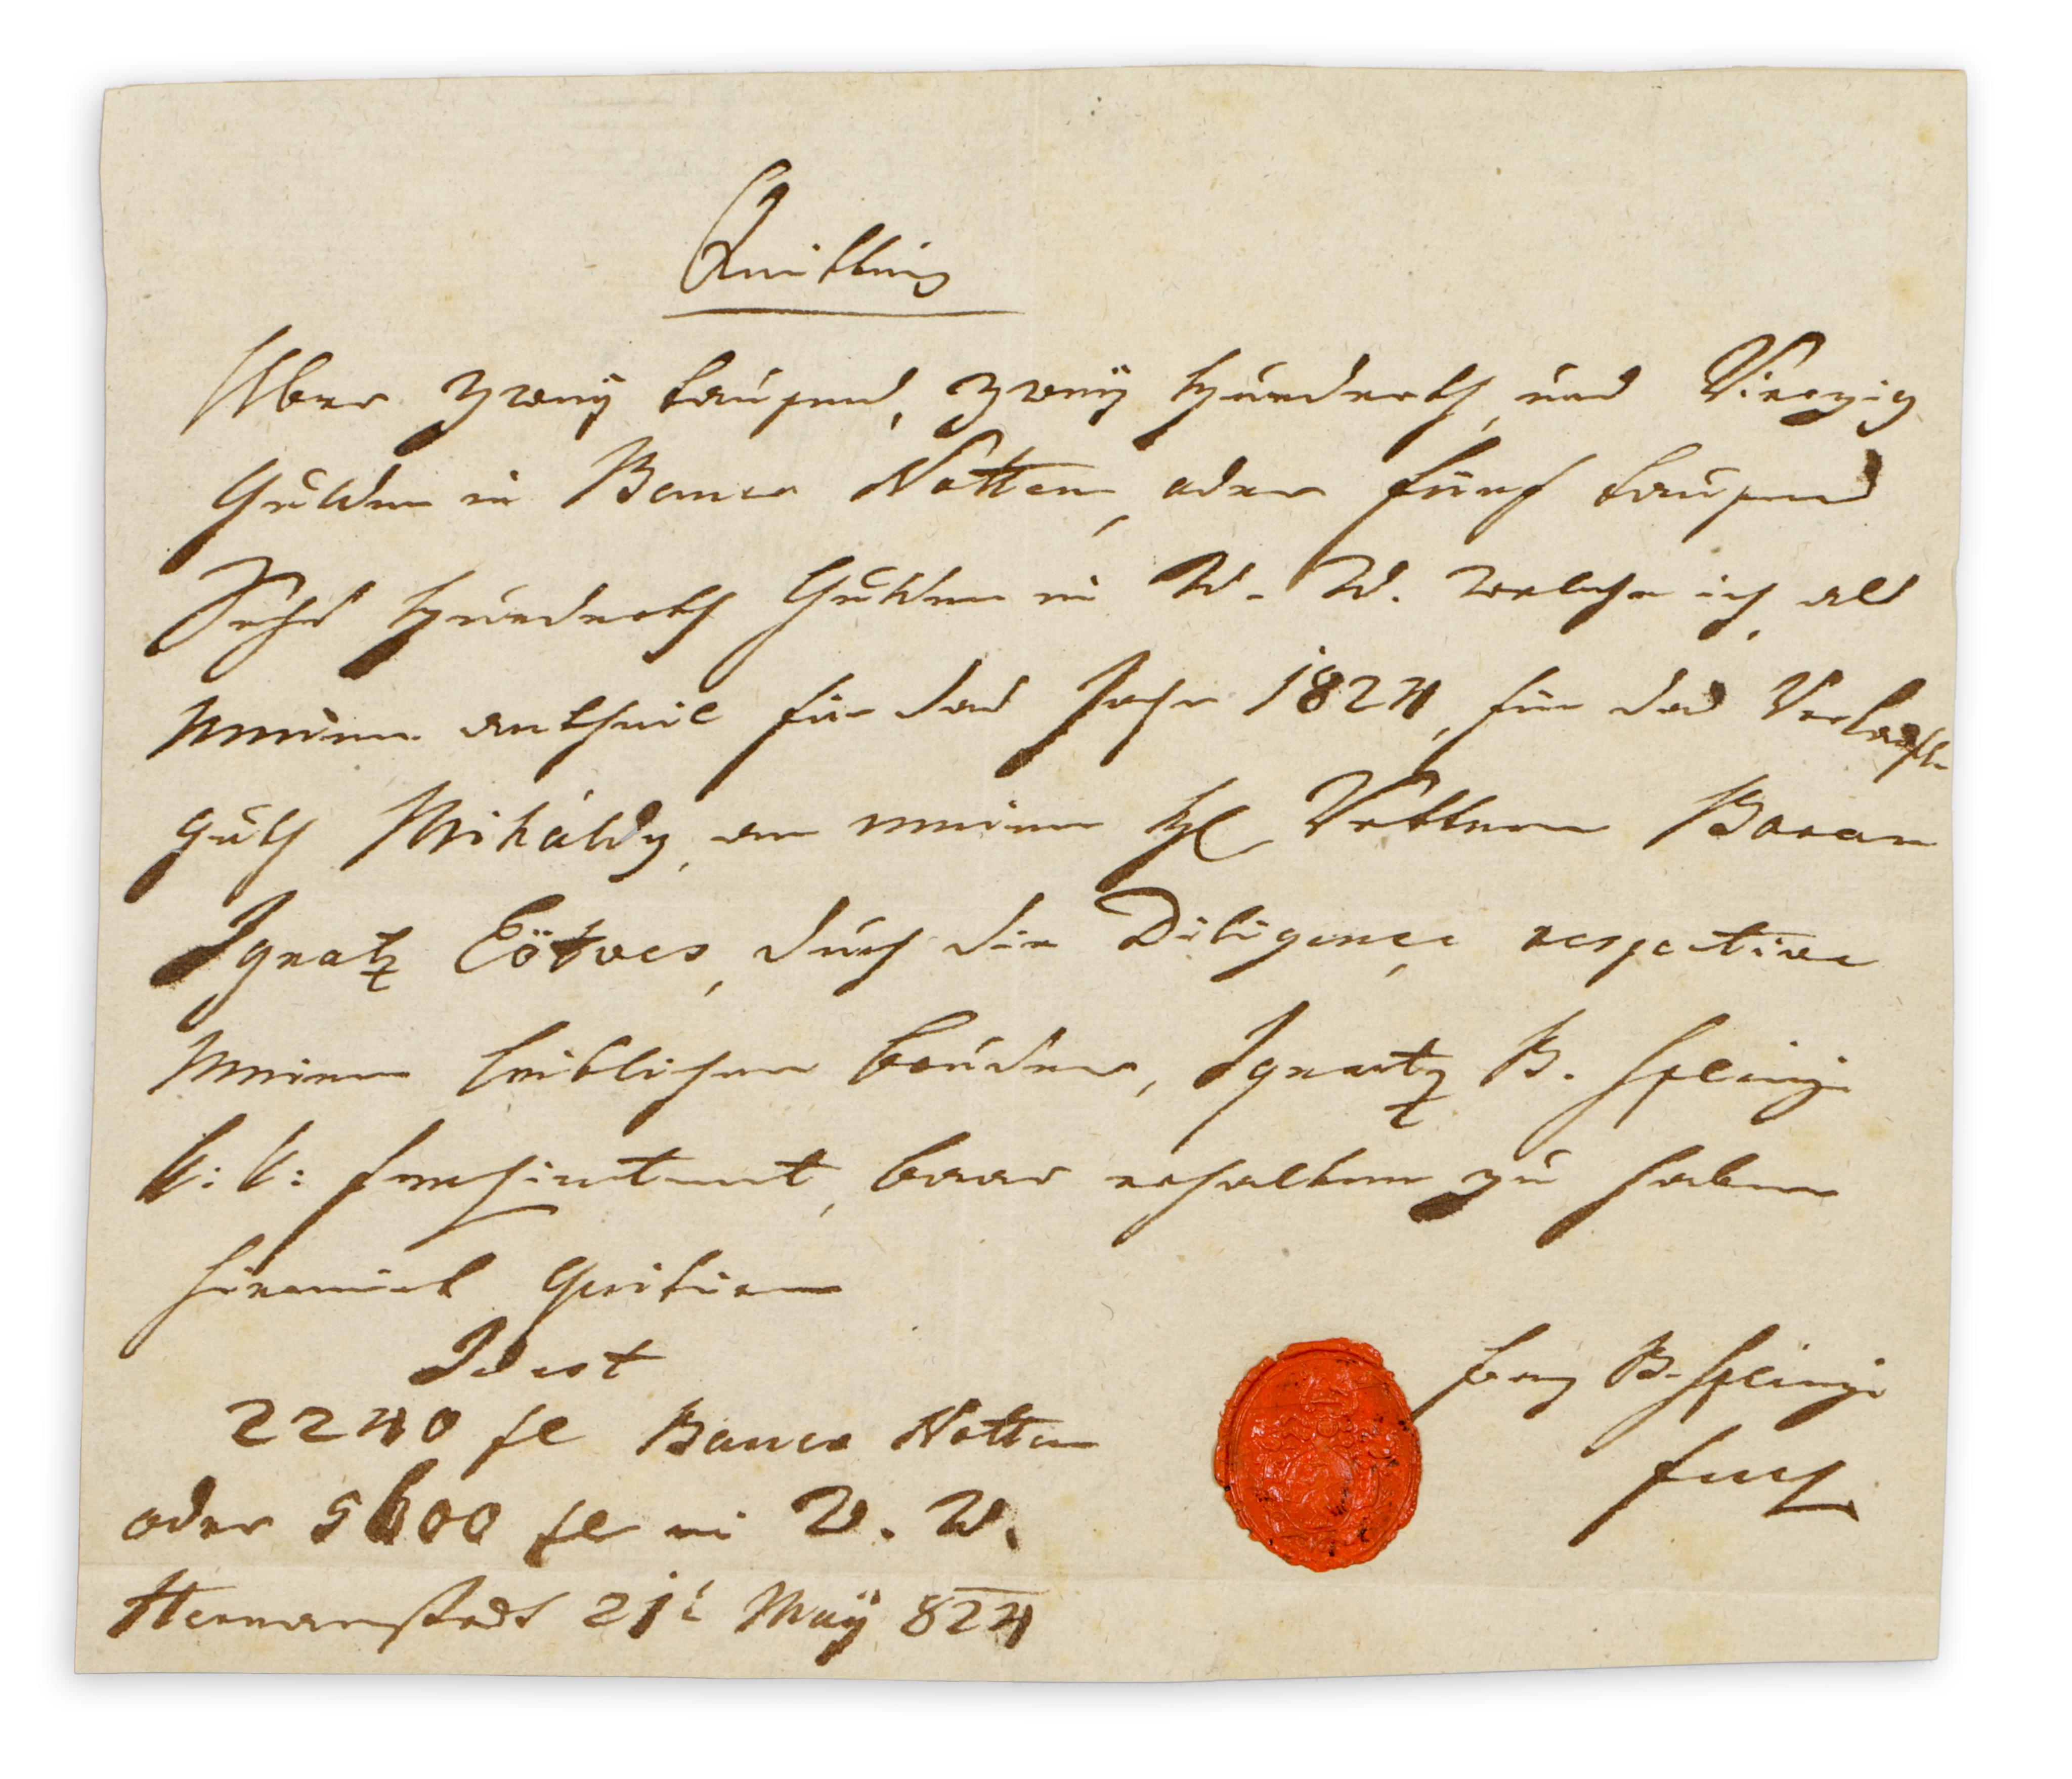 Quittung
Uber zweÿ tausend, zweÿ hunderth, und Vierzig
Gulden in Banco Notten, oder fünf tausend
Sechs hunderth Gulden in W. W. welche ich, als
meinen antheil für das Jahr 1824, für das
guth Miháldy, an meinen H Vettern Baron
Ignatz Eötves, durch die Diligence, respective
meinen leiblichen bruder, Ignatz B. Spleny
k: k:, baar erhalten zu haben
hiemit
Id est
2240 fl Banco Notten
oder 5600 fl in W. W.
Hermanstadt 21t Maÿ 824
B. Spleny